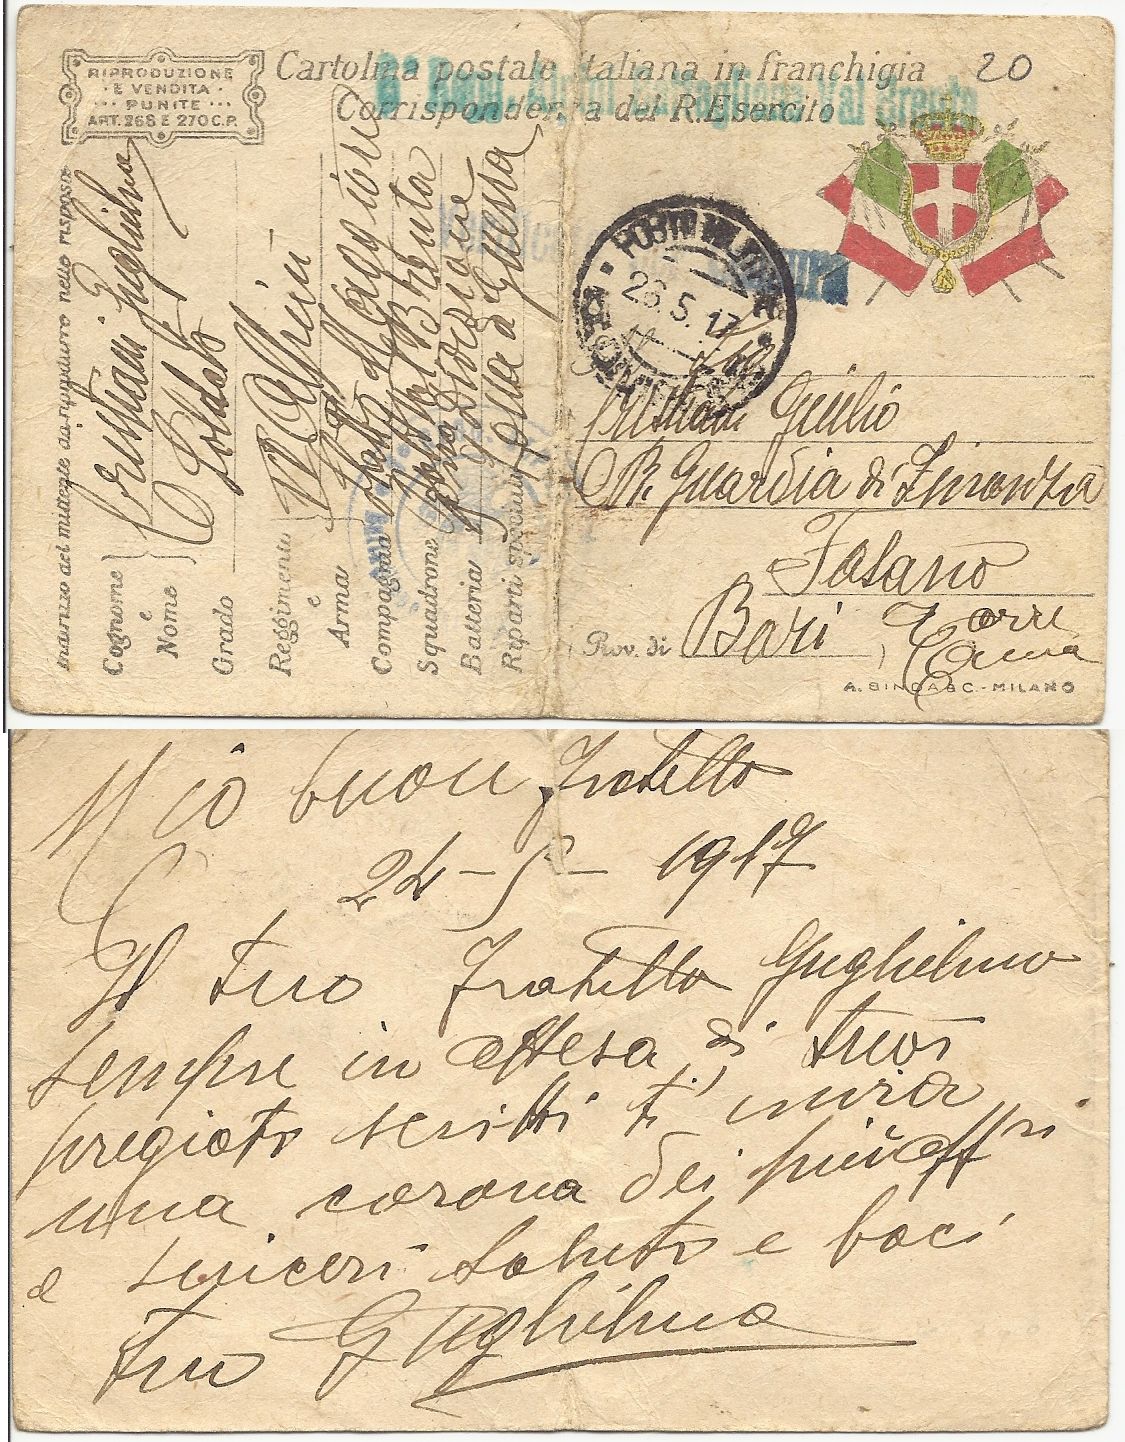 RIPRODUZIONE
E VENDITA
PUNITE
ART. 268 E 270 C.P.
Cartolina postale italiana in franchigia
Corrispondenza del R. Esercito
20
Val Brenta
POSTA MILITARE
26.5.17
Indirizzo del mittente da riprodurre nella risposta
Cognome e Nome
Cristiani Guglielmo
Grado
Soldato
Reggimento e Arma
Alpini
Compagnia
Squadrone
Val Brenta
Batteria
Divisione
Riparti speciali
Zona di Guerra
Cristiani Giulio
R. Guardia di Finanza
Fasano
Prov. di Bari Torre
Canna
A. BINDA & C. - MILANO
Mio buon Fratello
24-5-1917
Il tuo Fratello Guglielmo
sempre in attesa di tuoi
pregiati scritti ti invia
una corona dei più affri
e sinceri saluti e baci
tuo Guglielmo